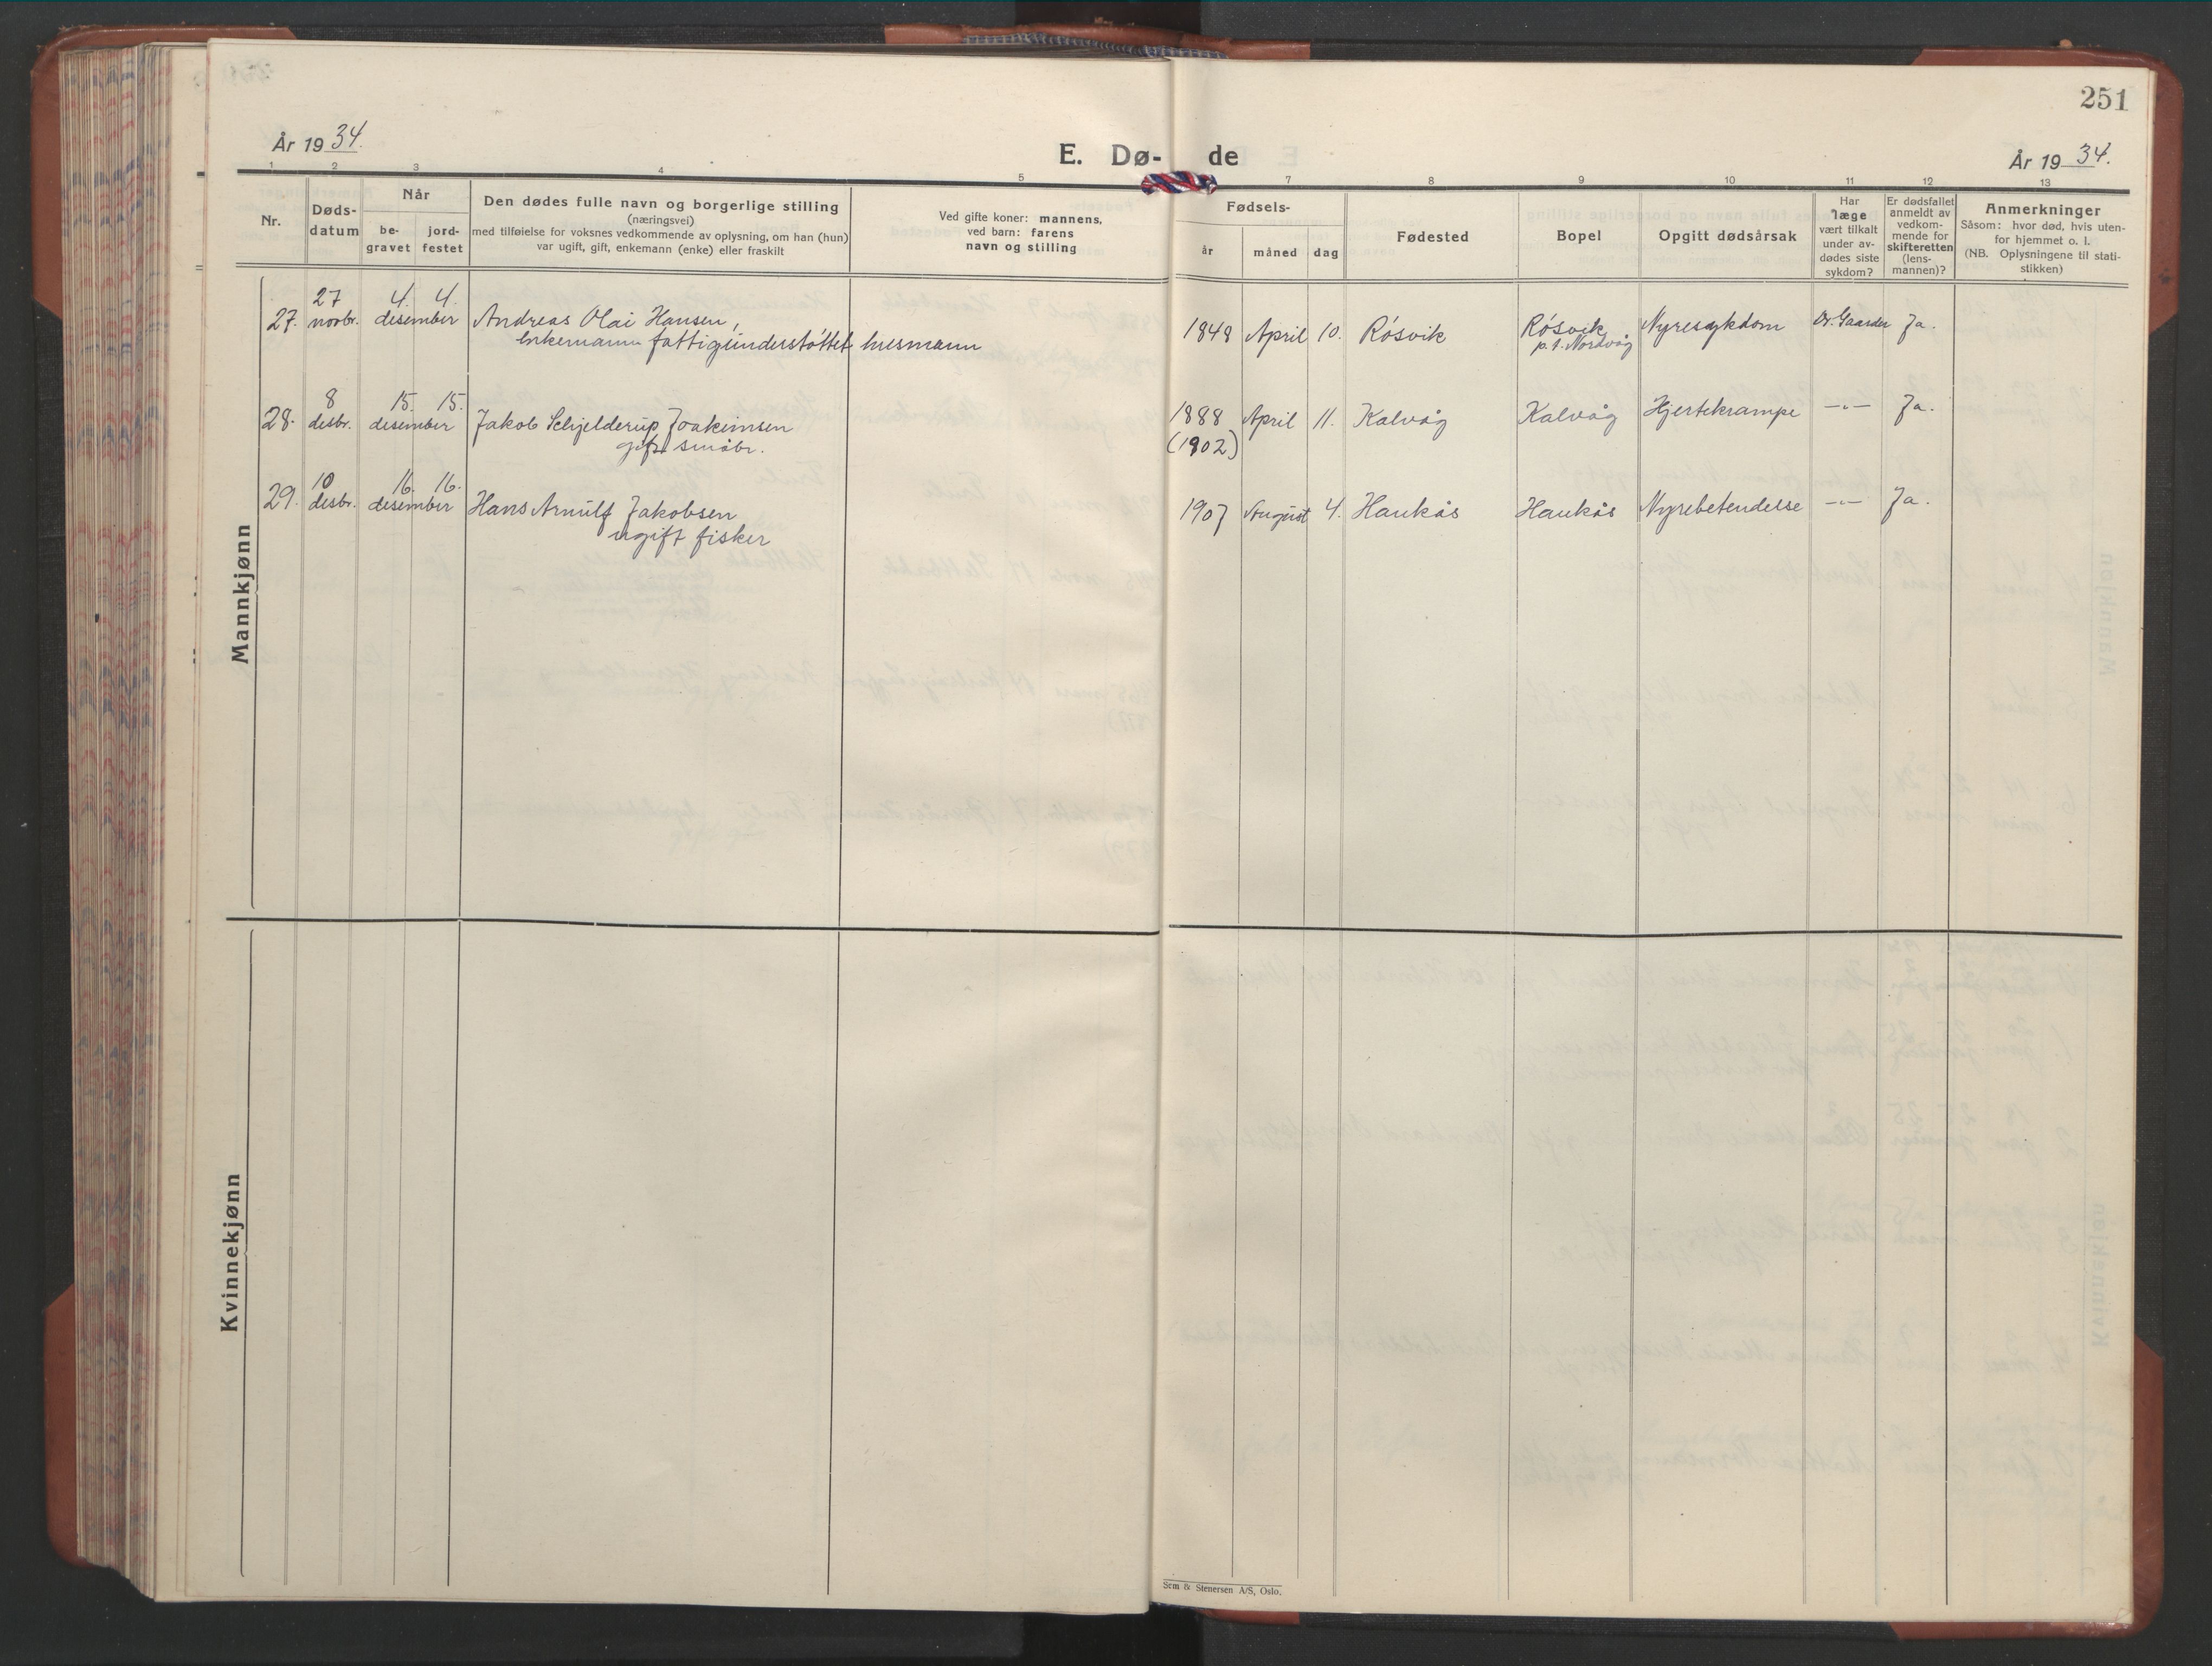 251
År 1934.
E. Dø- de
År 1934.
1 2 3 4 5 7 8 9 10 11 12 13
Nr.
Døds-
datum
Når
be-
gravet
jord-
festet
Den dødes fulle navn og borgerlige stilling
(næringsvei)
med tilføielse for voksnes vedkommende av oplysning, om han (hun)
var ugift, gift, enkemann (enke) eller fraskilt
Ved gifte koner: mannens,
ved barn: farens
navn og stilling
Fødsels-
år måned dag
Fødested
Bopel
Opgitt dødsårsak
Har
læge
vært tilkalt
under av-
dødes siste
sykdom?
Er dødsfallet
anmeldt av
vedkom-
mende for
skifteretten
(lens-
mannen)?
Anmerkninger
Såsom: hvor død, hvis uten-
for hjemmet o. l.
(NB. Oplysningene til stati-
stikken)
Mannkjønn
27 4. 4.
27. novbr. desember Andreas Olai Hansen, 1848 April 10. Røsvik Røsvik Nyresykdom Dr. Gaarder Ja.
Enkemann fattigunderstøttet husmann p.t. Nordvåg
8 15. 15.
28. desbr. desember Jakob Schjelderup Joakimsen 1888 April 11. Kalvåg Kalvåg Hjertekrampe —"— Ja.
gift småbr. (1902)
10 16. 16.
29. desbr. desember Hans Arnulf Jakobsen 1907 August 4. Haukås Haukås Nyrebetendelse —"— Ja.
ugift fisker
Kvinnekjønn
Sem & Stenersen A/S, Oslo.